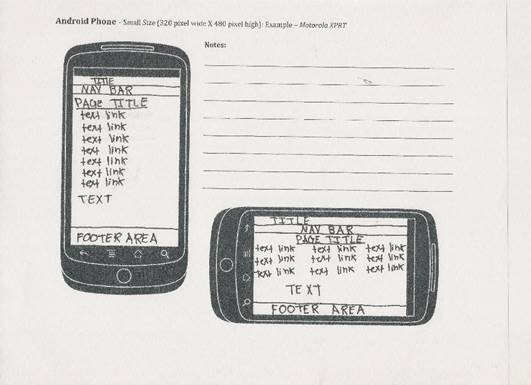 Android Phone - Small Size (320 pixel wide X 480 pixel high): Example – Motorola XPRT
Notes:
TITLE
NAV BAR
PAGE TITLE
text link
text link
text link
text link
text link
text link
text link
TEXT
FOOTER AREA
TITLE
NAV BAR
PAGE TITLE
text link text link text link
text link text link text link
text link text link text link
TEXT
FOOTER AREA